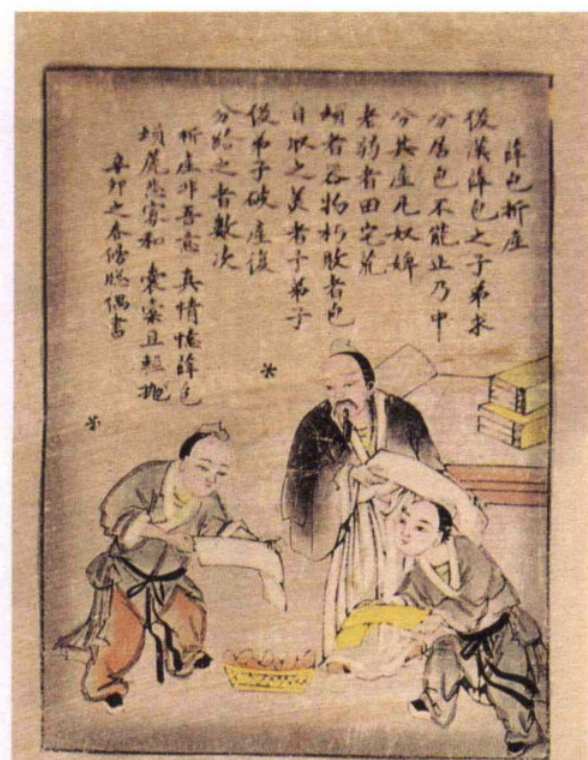 薛包析產
後漢薛包之子弟求
分居包不能止乃中
分其產凡奴婢
老弱者田宅荒
頓者器物朽敗者包
自取之美者予弟子
後弟子破產復
分給之者數次
析產非吾意 真情憶薛包
塤篪悲寡和 囊橐且輕拋
辛卯之春偶書